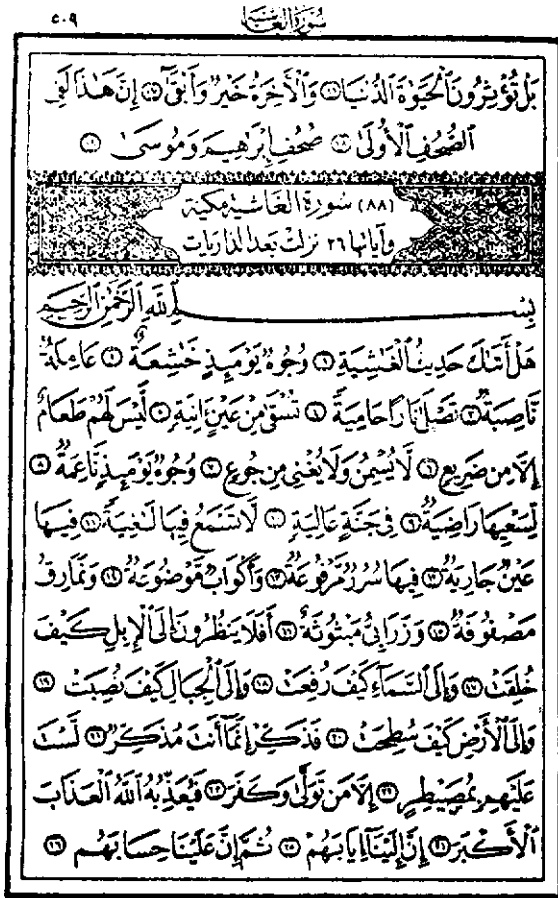 ٥٠٩ سُورَةُ الغَاشِيَة
بَلْ تُؤْثِرُونَ ٱلْحَيَوٰةَ ٱلدُّنْيَا ۝١٦ وَٱلْأَخِرَةُ خَيْرٌ وَأَبْقَىٰٓ ۝١٧ إِنَّ هَـٰذَا لَفِى
ٱلصُّحُفِ ٱلْأُولَىٰ ۝١٨ صُحُفِ إِبْرَٰهِيمَ وَمُوسَىٰ ۝١٩
(٨٨) سُورَةُ الغَاشِيَةِ مَكِيَّة
وَآيَاتُهَا ٢٦ نَزَلَتْ بَعْدَ الذَّارِيَات
بِسْمِ ٱللَّهِ ٱلرَّحْمَـٰنِ ٱلرَّحِيمِ
هَلْ أَتَىٰكَ حَدِيثُ ٱلْغَـٰشِيَةِ ۝١ وُجُوهٌ يَوْمَئِذٍ خَـٰشِعَةٌ ۝٢ عَامِلَةٌ
نَّاصِبَةٌ ۝٣ تَصْلَىٰ نَارًا حَامِيَةً ۝٤ تُسْقَىٰ مِنْ عَيْنٍ ءَانِيَةٍ ۝٥ لَّيْسَ لَهُمْ طَعَامٌ
إِلَّا مِن ضَرِيعٍ ۝٦ لَّا يُسْمِنُ وَلَا يُغْنِى مِن جُوعٍ ۝٧ وُجُوهٌ يَوْمَئِذٍ نَّاعِمَةٌ ۝٨
لِّسَعْيِهَا رَاضِيَةٌ ۝٩ فِى جَنَّةٍ عَالِيَةٍ ۝١٠ لَّا تَسْمَعُ فِيهَا لَـٰغِيَةً ۝١١ فِيهَا
عَيْنٌ جَارِيَةٌ ۝١٢ فِيهَا سُرُرٌ مَّرْفُوعَةٌ ۝١٣ وَأَكْوَابٌ مَّوْضُوعَةٌ ۝١٤ وَنَمَارِقُ
مَصْفُوفَةٌ ۝١٥ وَزَرَابِىُّ مَبْثُوثَةٌ ۝١٦ أَفَلَا يَنظُرُونَ إِلَى ٱلْإِبِلِ كَيْفَ
خُلِقَتْ ۝١٧ وَإِلَى ٱلسَّمَآءِ كَيْفَ رُفِعَتْ ۝١٨ وَإِلَى ٱلْجِبَالِ كَيْفَ نُصِبَتْ ۝١٩
وَإِلَى ٱلْأَرْضِ كَيْفَ سُطِحَتْ ۝٢٠ فَذَكِّرْ إِنَّمَآ أَنتَ مُذَكِّرٌ ۝٢١ لَّسْتَ
عَلَيْهِم بِمُصَيْطِرٍ ۝٢٢ إِلَّا مَن تَوَلَّىٰ وَكَفَرَ ۝٢٣ فَيُعَذِّبُهُ ٱللَّهُ ٱلْعَذَابَ
ٱلْأَكْبَرَ ۝٢٤ إِنَّ إِلَيْنَآ إِيَابَهُمْ ۝٢٥ ثُمَّ إِنَّ عَلَيْنَا حِسَابَهُم ۝٢٦